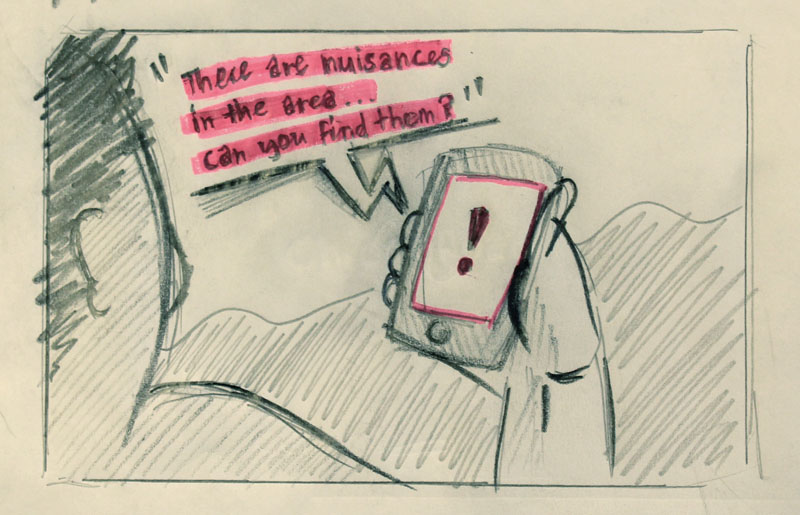 "There are nuisances
in the area...
can you find them?"
!